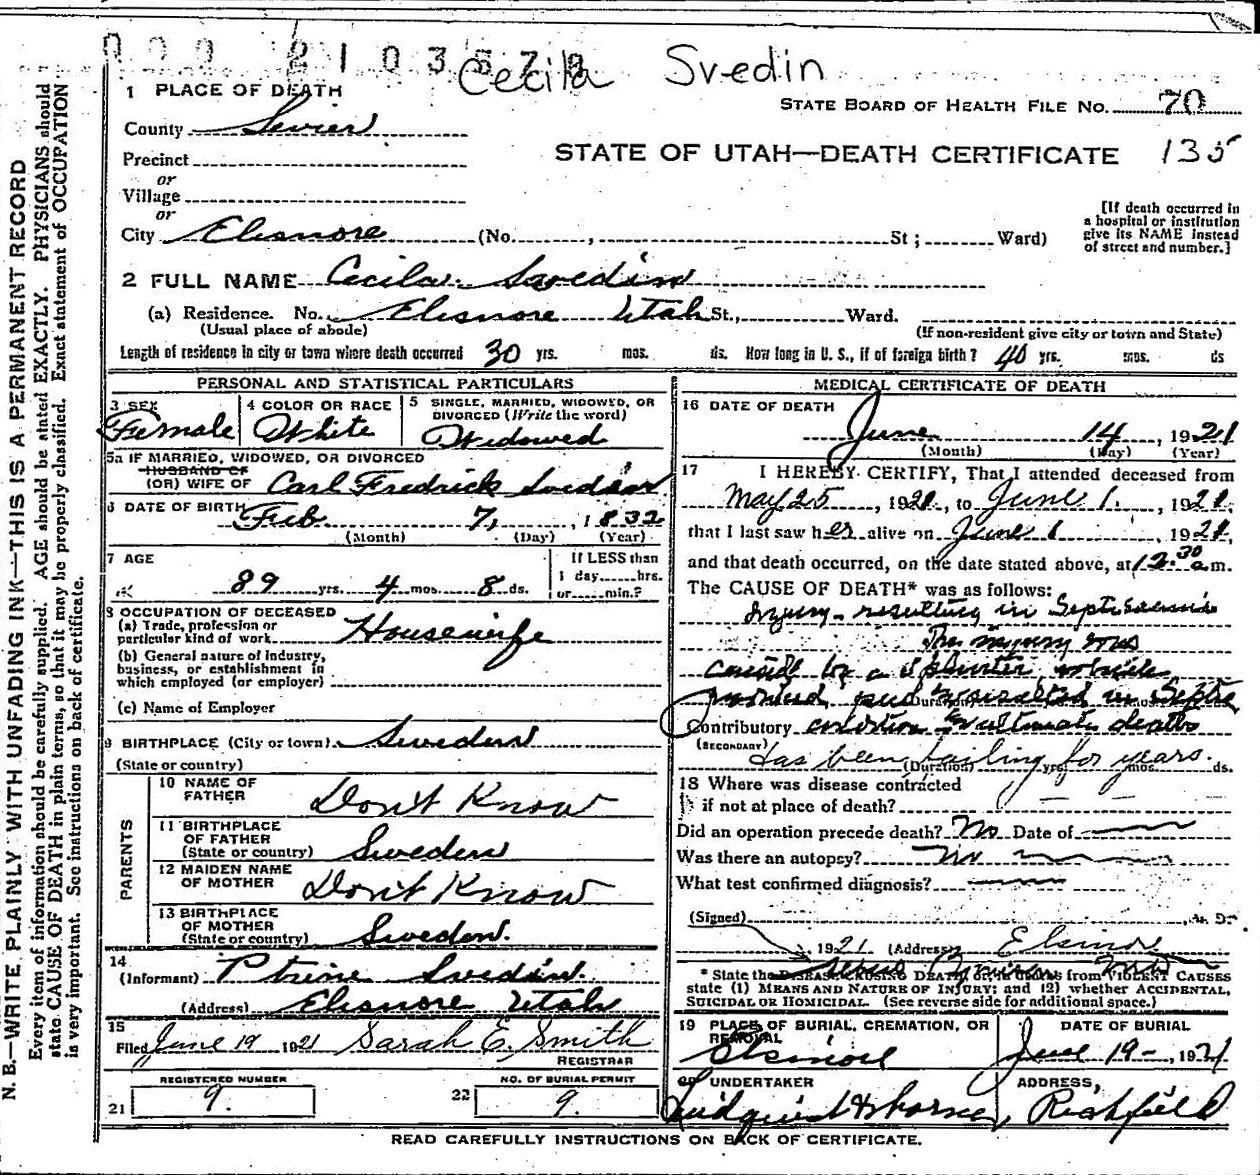 2103579
Cecila Svedin
1 PLACE OF DEATH
STATE BOARD OF HEALTH FILE NO. 70
County Sevier
STATE OF UTAH—DEATH CERTIFICATE 135
Precinct
or
Village
or
City Elesnore (No. , St; Ward)
[If death occurred in
a hospital or institution
give its NAME instead
of street and number.]
2 FULL NAME Cecila Svedin
(a) Residence. No. Elesnore Utah St., Ward.
(Usual place of abode) (If non-resident give city or town and State)
Length of residence in city or town where death occurred 30 yrs. mos. ds. How long in U. S., if of foreign birth? 40 yrs. mos. ds
PERSONAL AND STATISTICAL PARTICULARS
3 SEX
Female
4 COLOR OR RACE
White
5 SINGLE, MARRIED, WIDOWED, OR
DIVORCED (Write the word)
Widowed
5a IF MARRIED, WIDOWED, OR DIVORCED
HUSBAND OF
(OR) WIFE OF Carl Fredrick Svedin
6 DATE OF BIRTH Feb 7, 1832
(Month) (Day) (Year)
7 AGE
89 yrs. 4 mos. 8 ds.
If LESS than
1 day......hrs.
or......min.?
8 OCCUPATION OF DECEASED
(a) Trade, profession or
particular kind of work Housewife
(b) General nature of industry,
business, or establishment in
which employed (or employer)
(c) Name of Employer
9 BIRTHPLACE (City or town) Sweden
(State or country)
PARENTS
10 NAME OF
FATHER Don't Know
11 BIRTHPLACE
OF FATHER
(State or country) Sweden
12 MAIDEN NAME
OF MOTHER Don't Know
13 BIRTHPLACE
OF MOTHER
(State or country) Sweden.
14
(Informant) Svedin.
(Address) Elesnore Utah
15
Filed June 19 1921 Sarah E. Smith
REGISTRAR
REGISTERED NUMBER
21 9.
NO. OF BURIAL PERMIT
22 9.
MEDICAL CERTIFICATE OF DEATH
16 DATE OF DEATH
June 14, 1921
(Month) (Day) (Year)
17 I HEREBY CERTIFY, That I attended deceased from
May 25, 1921, to June 1. 1921,
that I last saw her alive on June 1 1921,
and that death occurred, on the date stated above, at 12.30 a.m.
The CAUSE OF DEATH* was as follows:
Injury resulting in
The injury was
caused by a splinter, which
pus resulted in Septic
Contributory condition ultimate death
(SECONDARY)
Has been failing for years.
(Duration) yrs. mos. ds.
18 Where was disease contracted
if not at place of death?
Did an operation precede death? No Date of
Was there an autopsy? No
What test confirmed diagnosis?
(Signed) M. D.
1921 (Address) Elsinore
* State the DISEASE CAUSING DEATH, or deaths from VIOLENT CAUSES
state (1) MEANS AND NATURE OF INJURY; and (2) whether ACCIDENTAL,
SUICIDAL OR HOMICIDAL. (See reverse side for additional space.)
19 PLACE OF BURIAL, CREMATION, OR
REMOVAL
Elsinore
DATE OF BURIAL
June 19-, 1921
20 UNDERTAKER
ADDRESS,
Richfield
READ CAREFULLY INSTRUCTIONS ON BACK OF CERTIFICATE.
N. B.—WRITE PLAINLY WITH UNFADING INK—THIS IS A PERMANENT RECORD
Every item of information should be carefully supplied. AGE should be stated EXACTLY. PHYSICIANS should
state CAUSE OF DEATH in plain terms, so that it may be properly classified. Exact statement of OCCUPATION
is very important. See instructions on back of certificate.